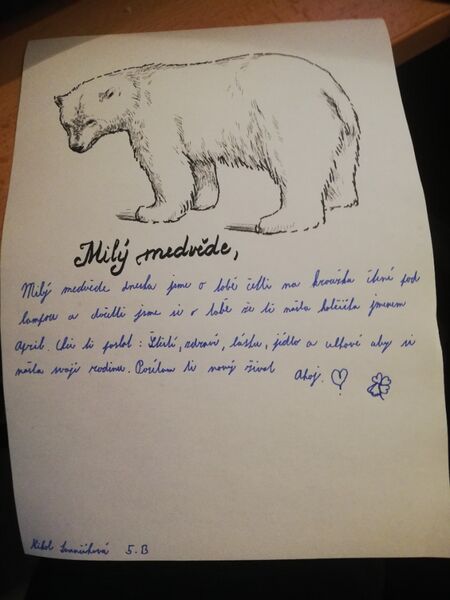 Milý medvěde,
Milý medvěde dneska jsme o tobě četli na kroužku čtení pod
lampou a dočetli jsme se o tobě že ti našla holčička jmenem
April. Chci ti poslat: Štěstí, zdraví, lásku, jídlo a celkově aby si
našla svoji rodinu. Posílam ti nový život Ahoj.
5.B